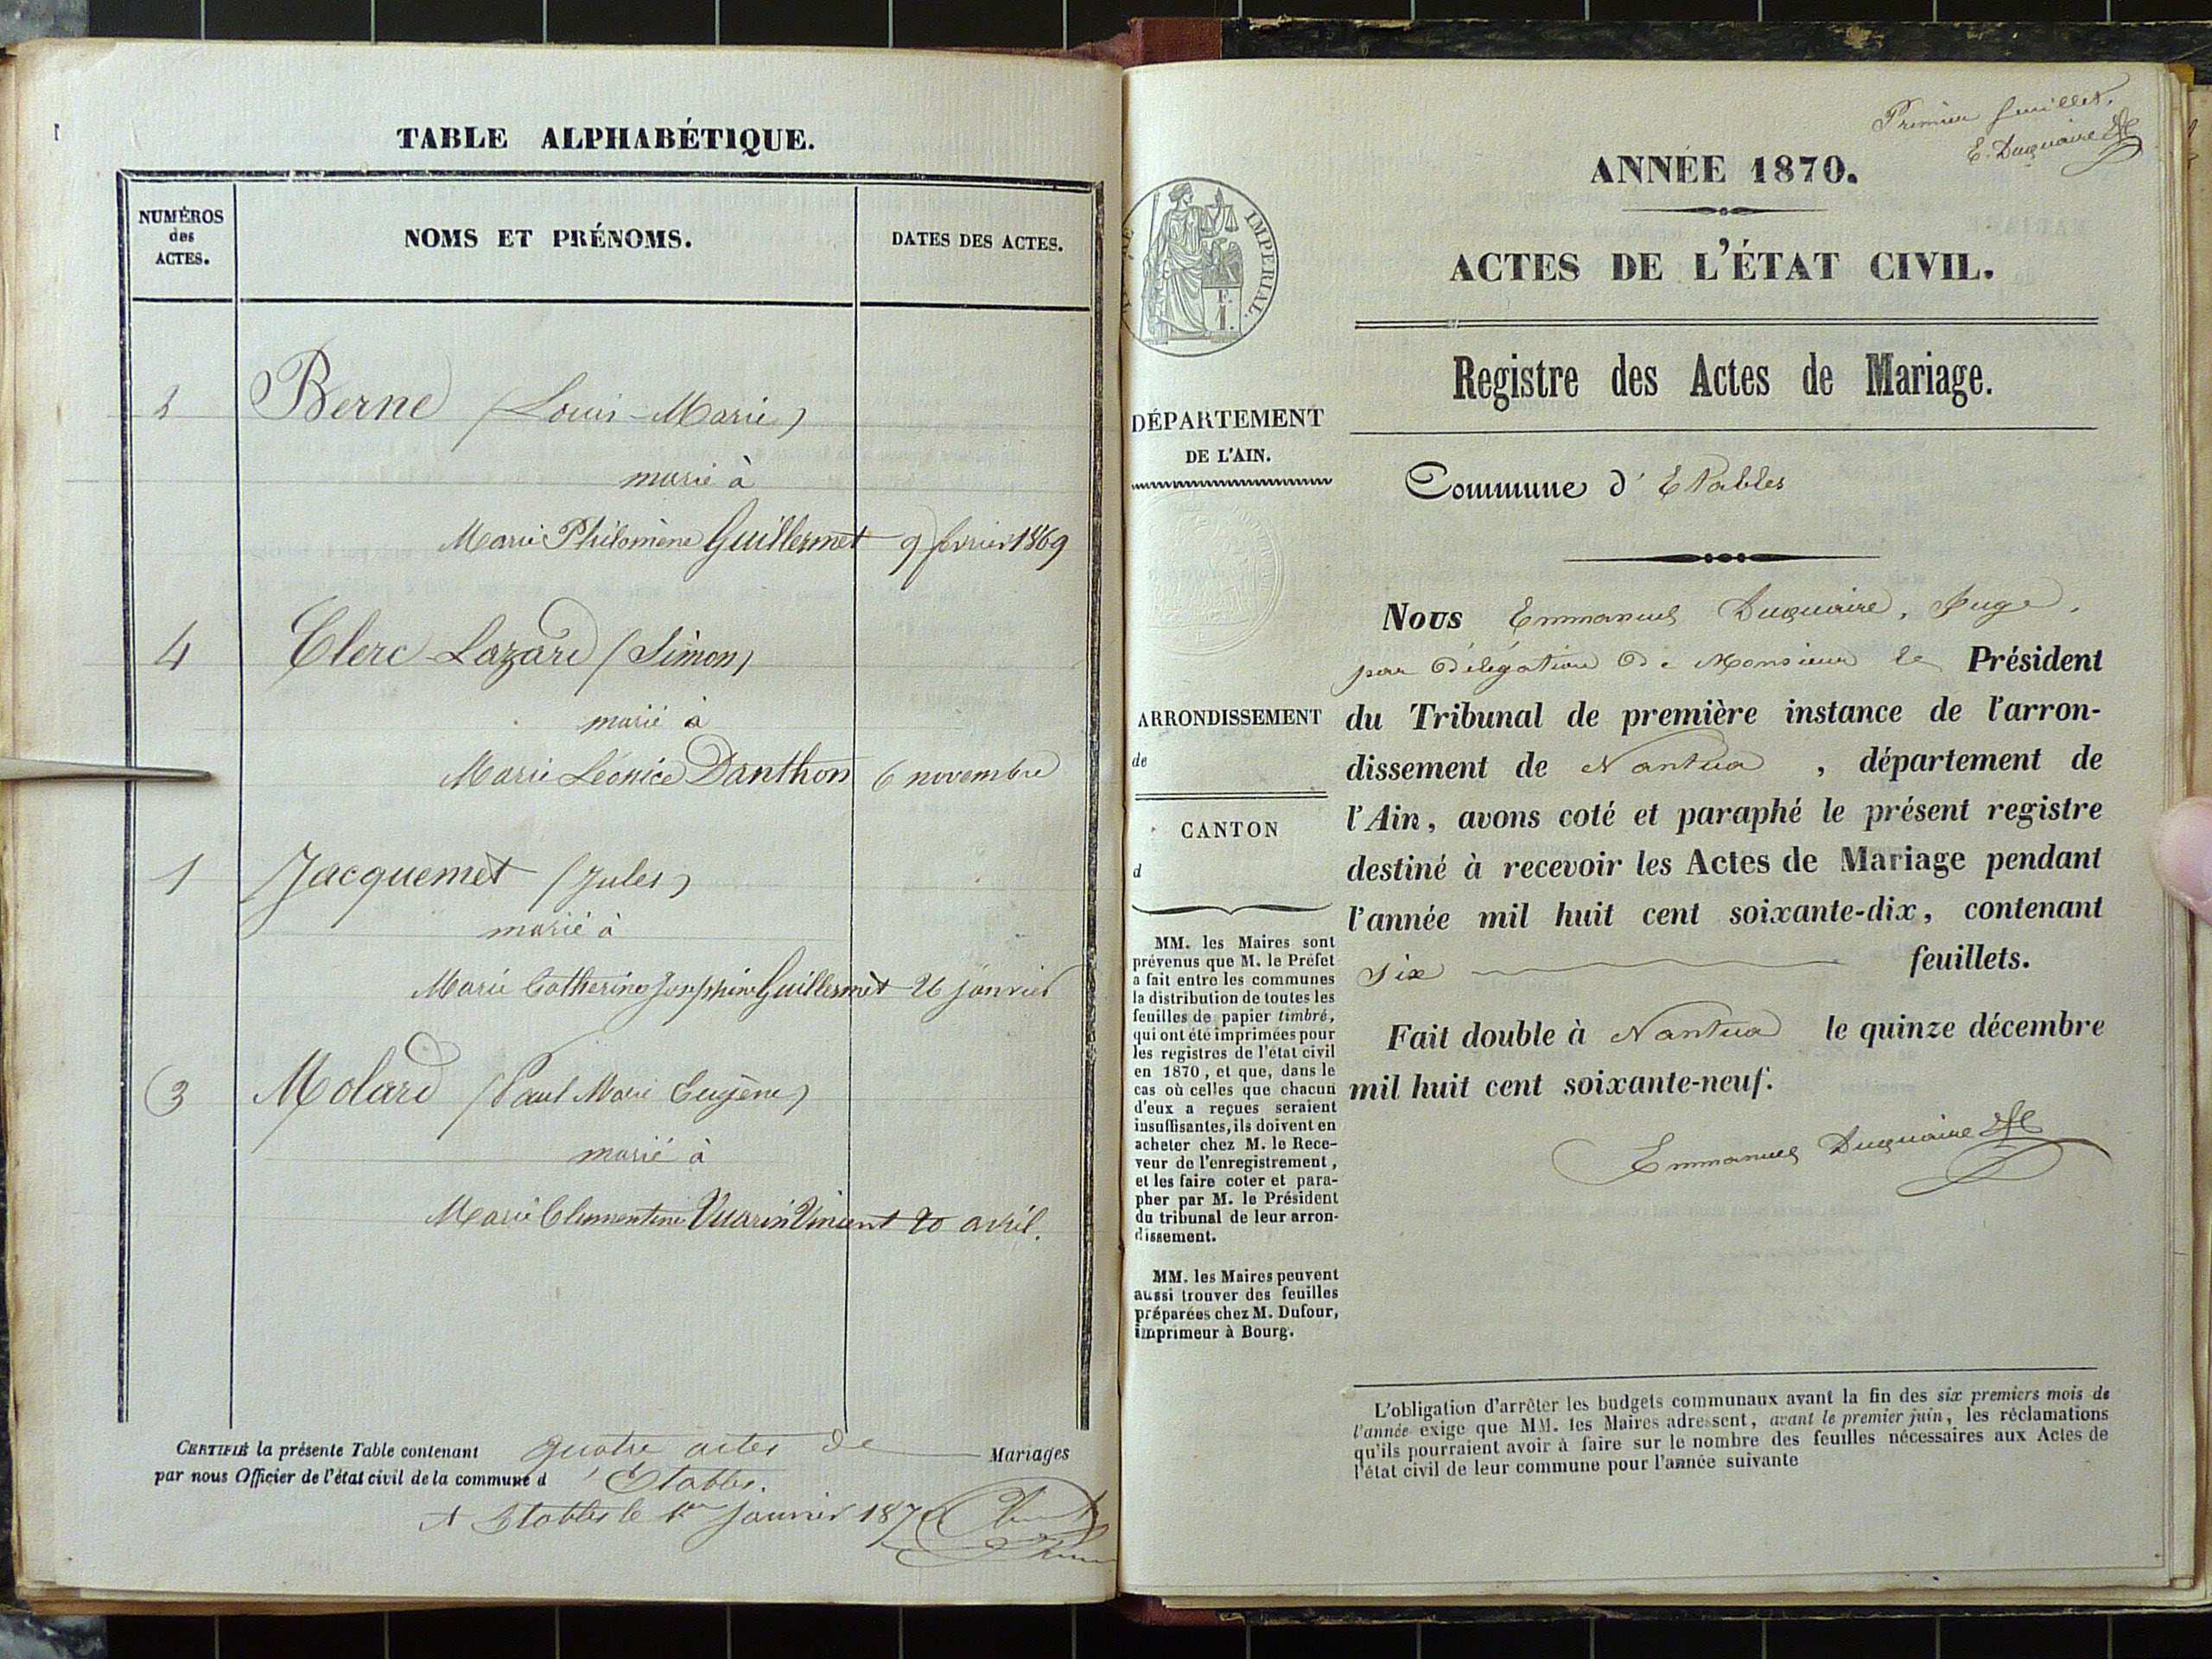 TABLE ALPHABÉTIQUE.
NUMÉROS
des
ACTES.
NOMS ET PRÉNOMS.
DATES DES ACTES.
2 Berne (Louis-Marie)
marié à
Marie Philomène Guillermet 9 février 1869
4 Clerc-Lazard (Simon)
marié à
Marie Léonice Danthon 6 novembre
1 Jacquemet (Jules)
marié à
Marie Catherine Josephine Guillermet 26 janvier
3 Molard (Paul Marie Eugène)
marié à
Marie Clementine Vuarin Vincent 20 avril.
CERTIFIÉ la présente Table contenant quatre actes de Mariages
par nous Officier de l'état civil de la commune d'Etables.
A Etables le 1er Janvier 1870
Premier feuillet.
E. Duquaire
ANNÉE 1870.
ACTES DE L'ÉTAT CIVIL.
IMPERIAL.
Registre des Actes de Mariage.
DÉPARTEMENT
DE L'AIN.
Commune d'Etables
ARRONDISSEMENT
de
CANTON
d
MM. les Maires sont
prévenus que M. le Préfet
a fait entre les communes
la distribution de toutes les
feuilles de papier timbré,
qui ont été imprimées pour
les registres de l'état civil
en 1870, et que, dans le
cas où celles que chacun
d'eux a reçues seraient
insuffisantes, ils doivent en
acheter chez M. le Rece-
veur de l'enregistrement,
et les faire coter et para-
pher par M. le Président
du tribunal de leur arron-
dissement.
MM. les Maires peuvent
aussi trouver des feuilles
préparées chez M. Dufour,
imprimeur à Bourg.
Nous Emmanuel Duquaire, Juge,
par délégation de Monsieur le Président
du Tribunal de première instance de l'arron-
dissement de Nantua, département de
l'Ain, avons coté et paraphé le présent registre
destiné à recevoir les Actes de Mariage pendant
l'année mil huit cent soixante-dix, contenant
six feuillets.
Fait double à Nantua le quinze décembre
mil huit cent soixante-neuf.
Emmanuel Duquaire
L'obligation d'arrêter les budgets communaux avant la fin des six premiers mois de
l'année exige que MM. les Maires adressent, avant le premier juin, les réclamations
qu'ils pourraient avoir à faire sur le nombre des feuilles nécessaires aux Actes de
l'état civil de leur commune pour l'année suivante